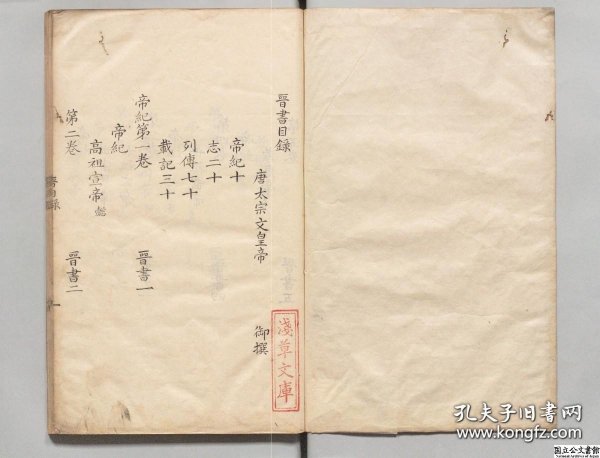 晉書目錄
唐太宗文皇帝 御撰
帝紀十
志二十
列傳七十
載記三十
帝紀第一卷 晉書一
帝紀
高祖宣帝懿
第二卷 晉書二
淺草文庫
孔夫子旧书网
www.kongfz.com
国立公文書館
National Archives of Japan